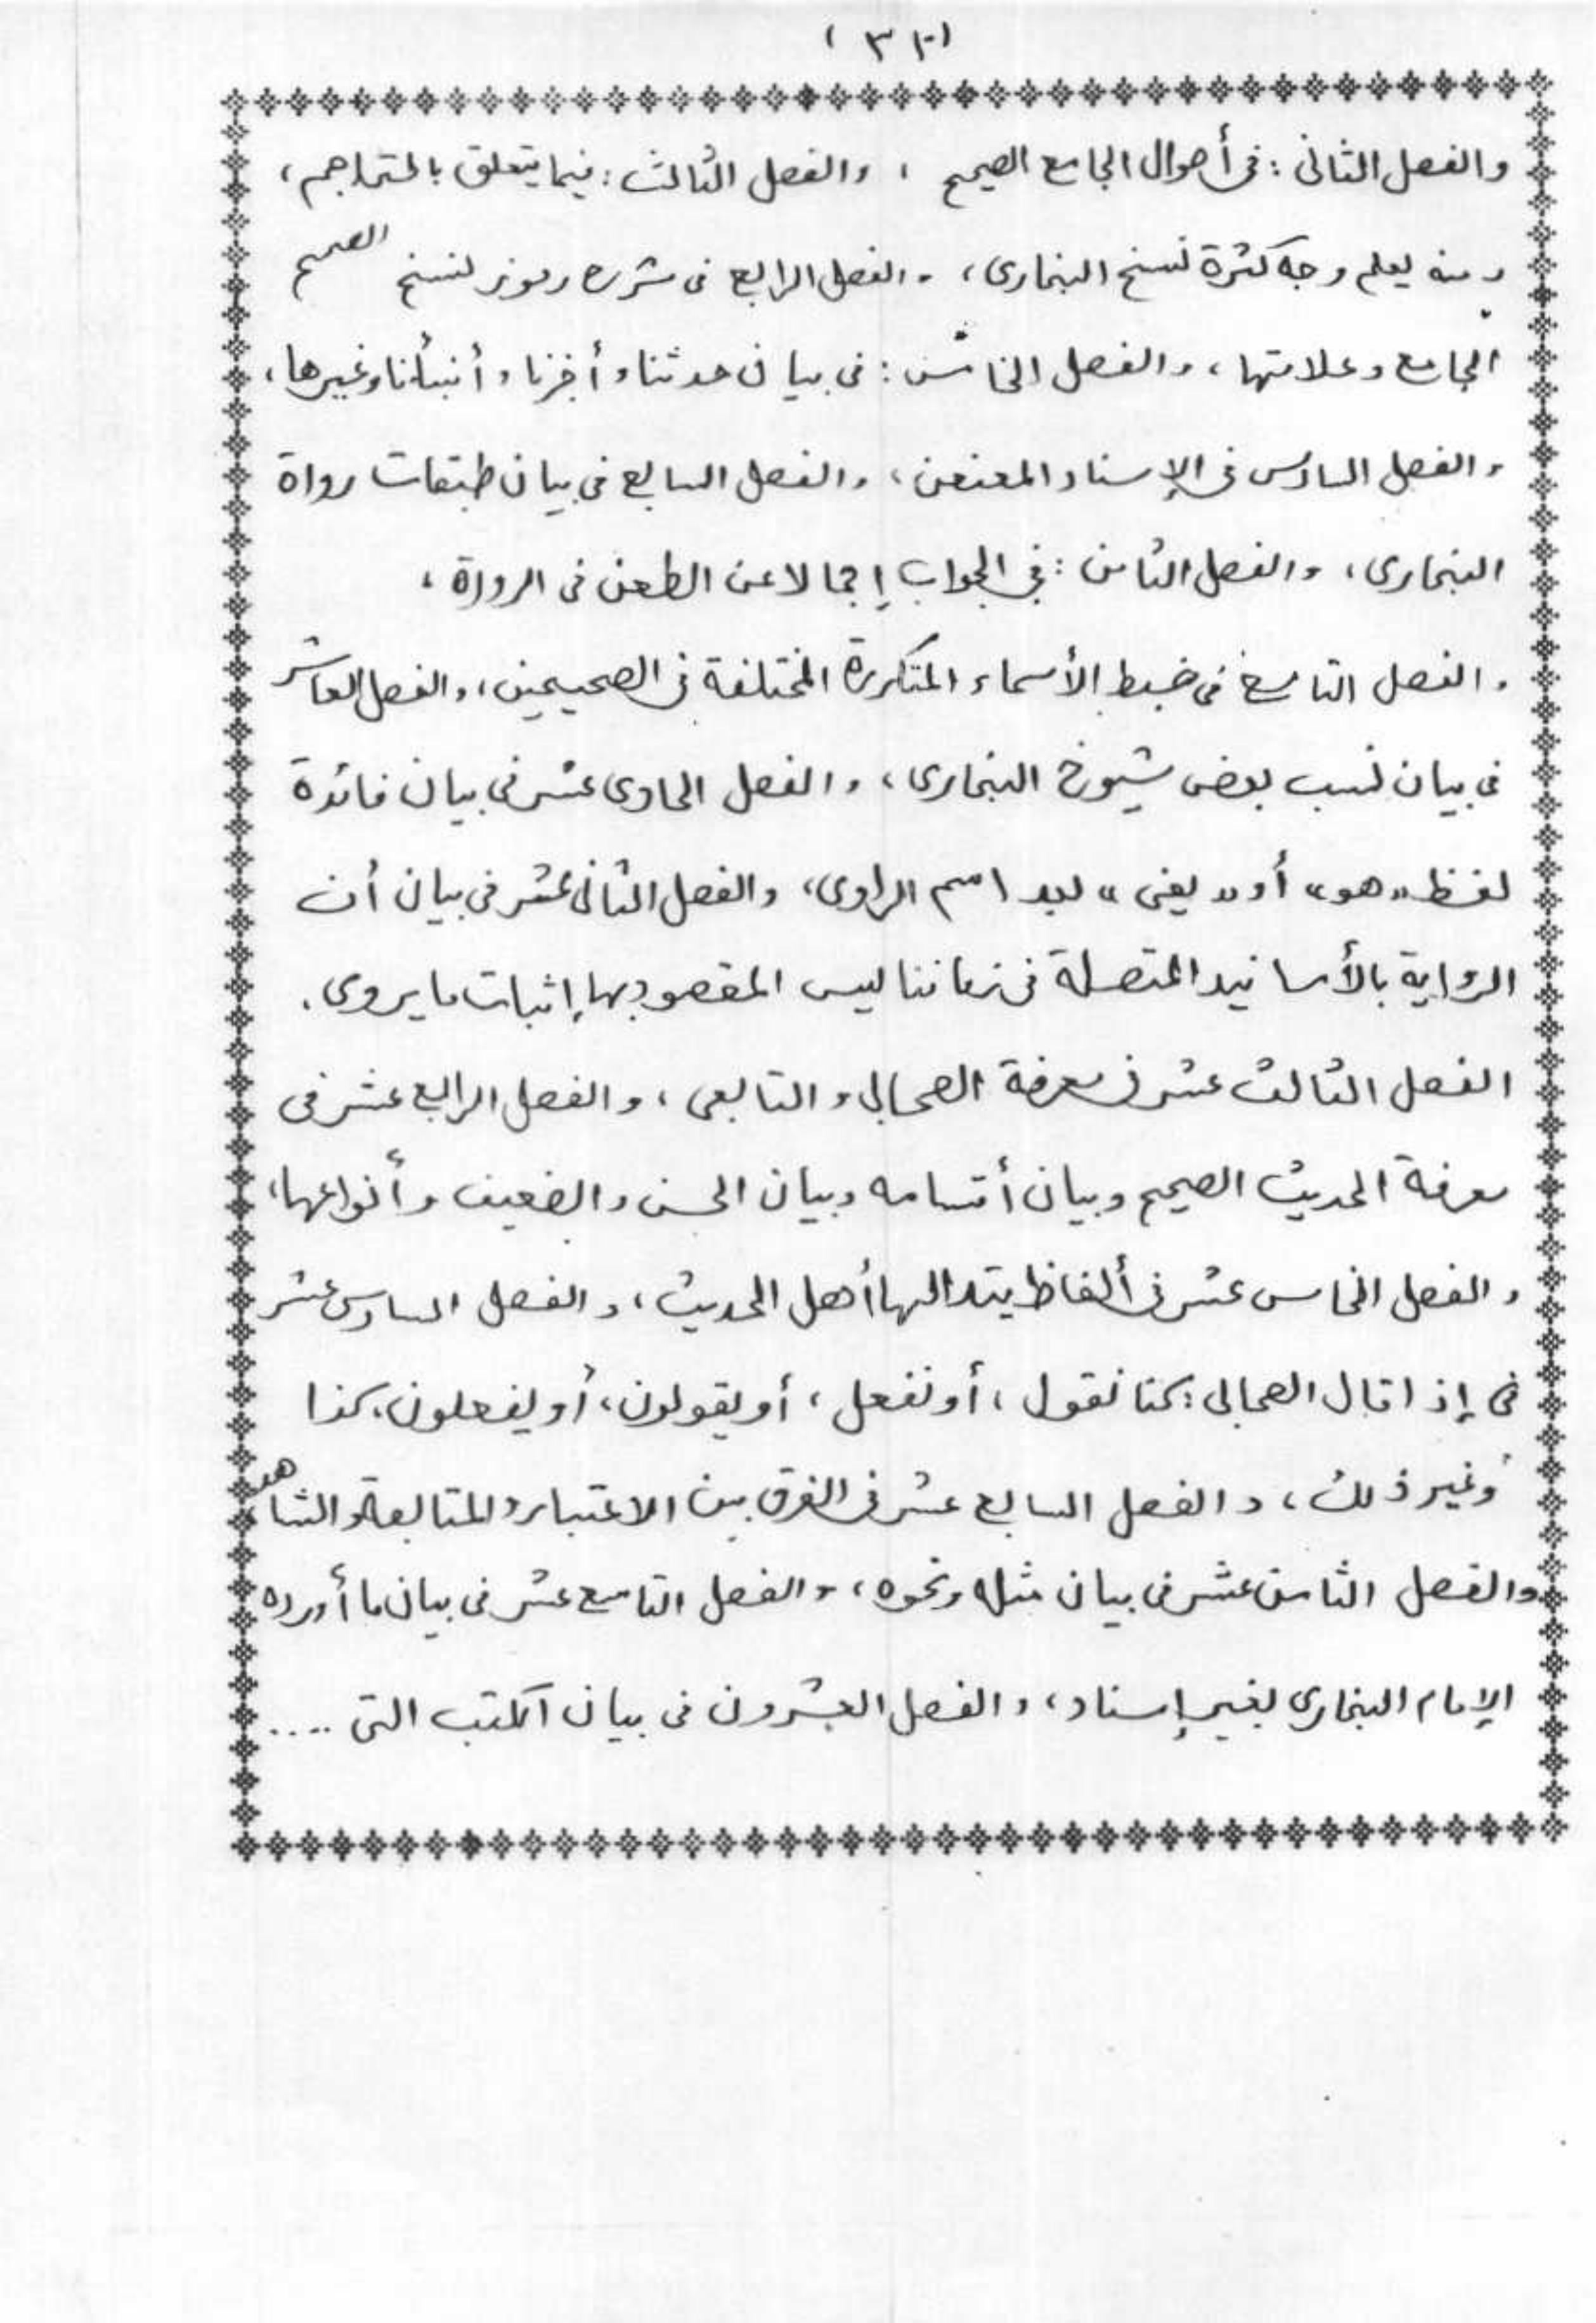 والفصل الثانى : فى أحوال الجامع الصحيح ، والفصل الثالث : فيما يتعلق بالتراجم ،
ومنه يعلم وجه كثرة نسخ البخارى ، والفصل الرابع فى شرح رموز لنسخ الصحيح
الجامع وعلامتها ، والفصل الخامس : فى بيان حدثنا وأخبرنا وأنبأنا وغيرها ،
والفصل السادس فى الإسناد المعنعن ، والفصل السابع فى بيان طبقات رواة
البخارى ، والفصل الثامن : فى الجواب إجمالا عن الطعن فى الرواة ،
والفصل التاسع فى ضبط الأسماء المتكررة المختلفة فى الصحيحين ، والفصل العاشر
فى بيان نسب بعض شيوخ البخارى ، والفصل الحادى عشر فى بيان فائدة
لفظ «هو» أو «يعنى» بعد اسم الراوى ، والفصل الثانى عشر فى بيان أن
الرواية بالأسانيد المتصلة فى زماننا ليس المقصود بها إثبات ما يروى .
الفصل الثالث عشر فى معرفة الصحابى والتابعى ، والفصل الرابع عشر فى
معرفة الحديث الصحيح وبيان أقسامه وبيان الحسن والضعيف وأنواعها ،
والفصل الخامس عشر فى ألفاظ يتداولها أهل الحديث ، والفصل السادس عشر
فى إذا قال الصحابى : كنا نقول ، أو نفعل ، أو يقولون ، أو يفعلون كذا
وغير ذلك ، والفصل السابع عشر فى الفرق بين الاعتبار والمتابعة والشاهد
والفصل الثامن عشر فى بيان مثله ونحوه ، والفصل التاسع عشر فى بيان ما أورده
الإمام البخارى بغير إسناد ، والفصل العشرون فى بيان الكتب التى ....